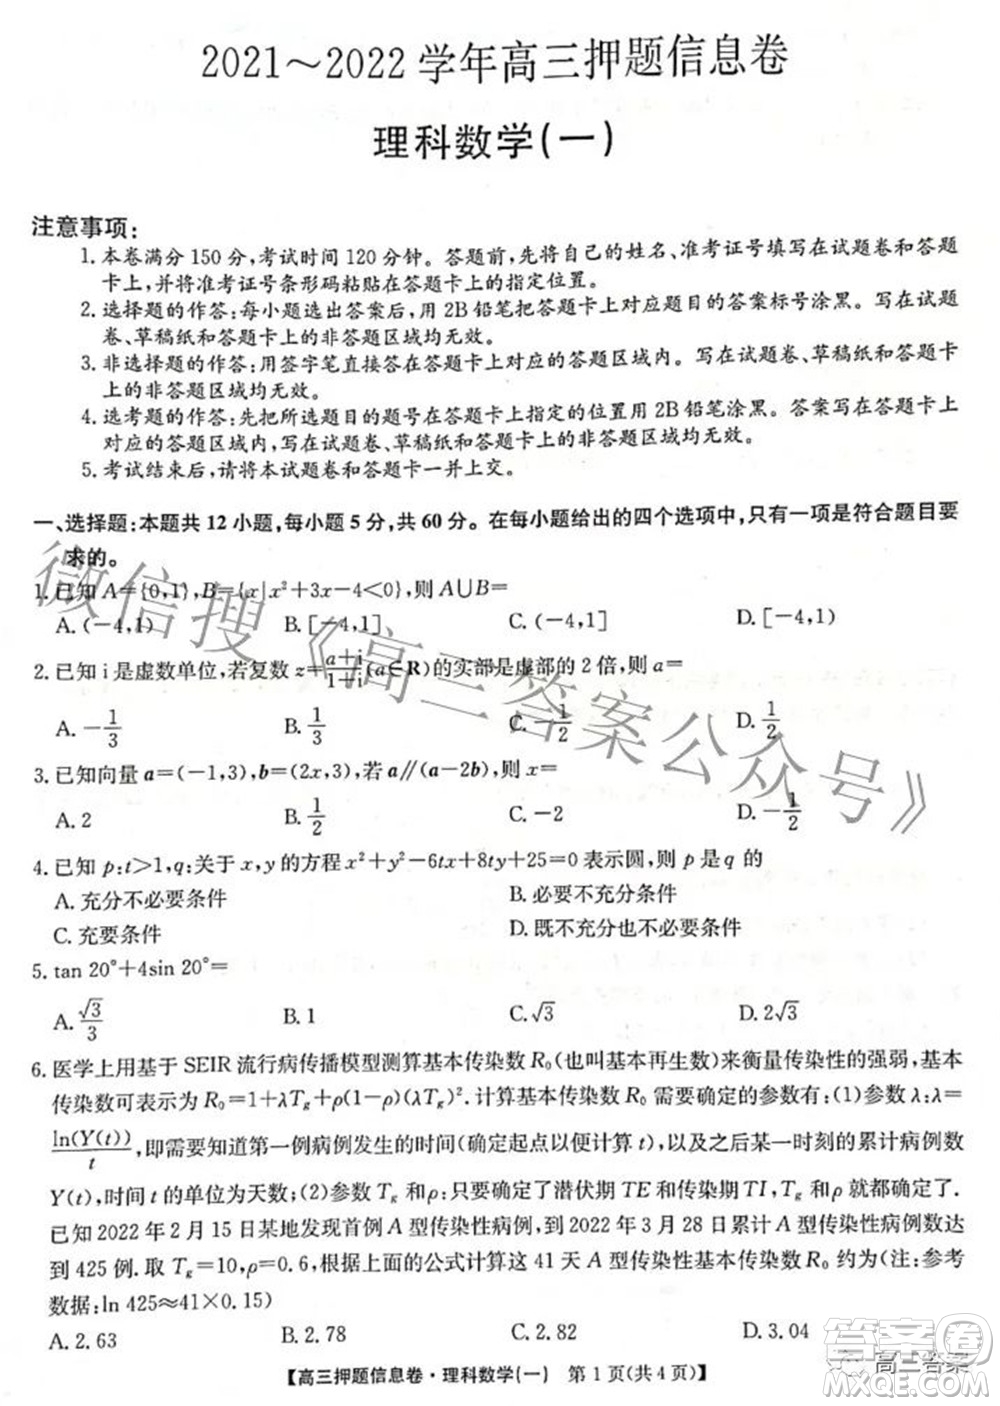 2021～2022学年高三押题信息卷
理科数学(一)
注意事项:
1.本卷满分150分,考试时间120分钟。答题前,先将自己的姓名、准考证号填写在试题卷和答题
卡上,并将准考证号条形码粘贴在答题卡上的指定位置。
2.选择题的作答:每小题选出答案后,用2B铅笔把答题卡上对应题目的答案标号涂黑。写在试题
卷、草稿纸和答题卡上的非答题区域均无效。
3.非选择题的作答:用签字笔直接答在答题卡上对应的答题区域内。写在试题卷、草稿纸和答题卡
上的非答题区域均无效。
4.选考题的作答:先把所选题目的题号在答题卡上指定的位置用2B铅笔涂黑。答案写在答题卡上
对应的答题区域内,写在试题卷、草稿纸和答题卡上的非答题区域均无效。
5.考试结束后,请将本试题卷和答题卡一并上交。
一、选择题:本题共12小题,每小题5分,共60分。在每小题给出的四个选项中,只有一项是符合题目要
求的。
1.已知A={0,1},B={x|x²+3x-4<0},则A∪B=
A.(-4,1) B.[-4,1] C.(-4,1] D.[-4,1)
2.已知i是虚数单位,若复数z=\frac{a+i}{1+i}(a∈R)的实部是虚部的2倍,则a=
A.-\frac{1}{3} B.\frac{1}{3} C.-\frac{1}{2} D.\frac{1}{2}
3.已知向量a=(-1,3),b=(2x,3),若a∥(a-2b),则x=
A.2 B.\frac{1}{2} C.-2 D.-\frac{1}{2}
4.已知p:t>1,q:关于x,y的方程x²+y²-6tx+8ty+25=0表示圆,则p是q的
A.充分不必要条件 B.必要不充分条件
C.充要条件 D.既不充分也不必要条件
5.tan 20°+4sin 20°=
A.\frac{\sqrt{3}}{3} B.1 C.√3 D.2√3
6.医学上用基于SEIR流行病传播模型测算基本传染数R₀(也叫基本再生数)来衡量传染性的强弱,基本
传染数可表示为R₀=1+λT_g+ρ(1-ρ)(λT_g)².计算基本传染数R₀需要确定的参数有:(1)参数λ:λ=
\frac{ln(Y(t))}{t},即需要知道第一例病例发生的时间(确定起点以便计算t),以及之后某一时刻的累计病例数
Y(t),时间t的单位为天数;(2)参数T_g和ρ:只要确定了潜伏期TE和传染期TI,T_g和ρ就都确定了.
已知2022年2月15日某地发现首例A型传染性病例,到2022年3月28日累计A型传染性病例数达
到425例.取T_g=10,ρ=0.6,根据上面的公式计算这41天A型传染性基本传染数R₀约为(注:参考
数据:ln 425≈41×0.15)
A.2.63 B.2.78 C.2.82 D.3.04
【高三押题信息卷·理科数学(一) 第1页(共4页)】
微信搜《高三答案公众号》
高三答案
答案圈
MXQE.COM